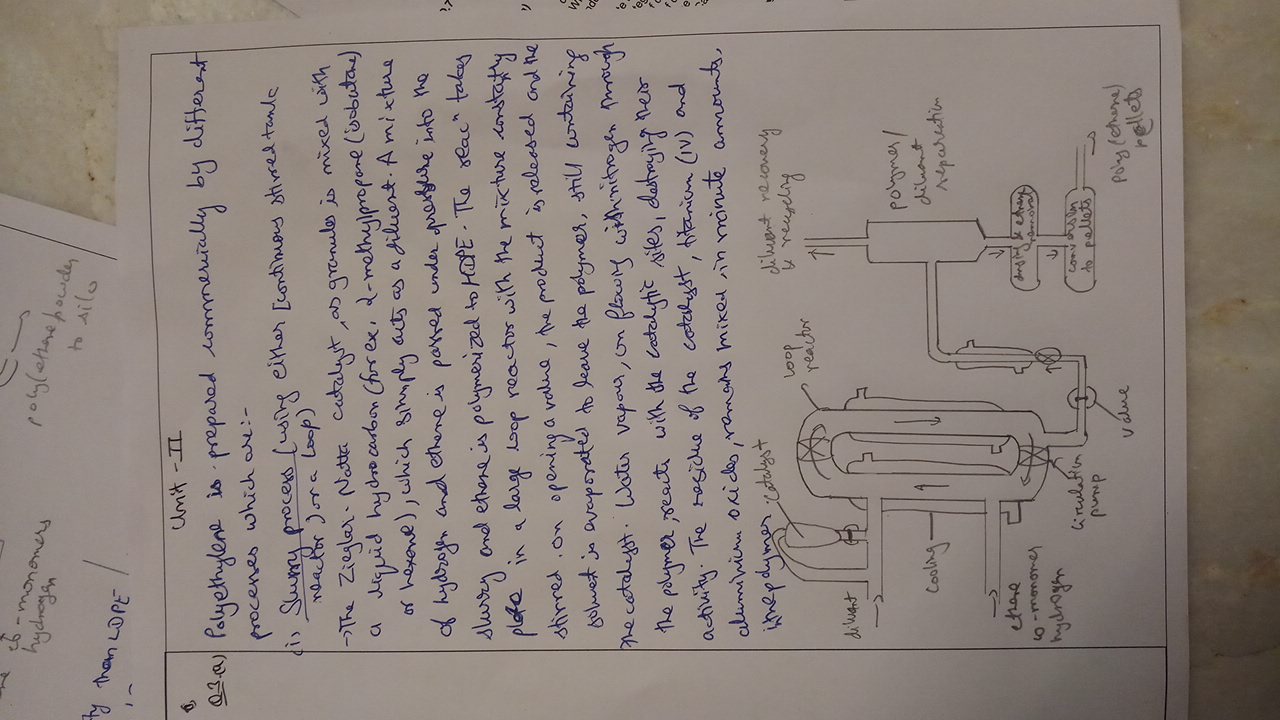 Unit - II
Q.3(a) Polyethylene is prepared commercially by different
processes which are:-
(i) Slurry process [using either [continuous stirred tank
reactor) or a loop)
→ The Ziegler-Natta catalyst, as granules is mixed with
a liquid hydrocarbon (for ex, 2-methylpropane (isobutane)
or hexane), which simply acts as a diluent. A mixture
of hydrogen and ethene is passed under pressure into the
slurry and ethene is polymerized to HDPE. The reacⁿ takes
place in a large loop reactor with the mixture constantly
stirred. On opening a valve, the product is released and the
solvent is evaporated to leave the polymer, still containing
the catalyst. Water vapour, on flowing with nitrogen through
the polymer, reacts with the catalytic sites, destroying their
activity. The residue of the catalyst, titanium (IV) and
aluminium oxides, remains mixed, in minute amounts,
in the polymer.
catalyst
loop
reactor
diluent recovery
& recycling
polymer/
diluent
separation
diluent
cooling
ethene
co-monomers
hydrogen
circulation
pump
valve
removal
conversion
to pellets
poly(ethene)
pellets
poly(ethene powder
to silo
co-monomers
hydrogen
than LDPE